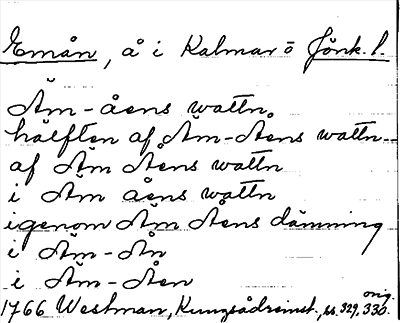 Emån, å i Kalmar o Jönk. l.
Äm-åens wattn
hälften af Äm-Åens wattn
af Äm Åens wattn
i Äm åens wattn
igenom Äm Åens dämning
i Äm-Ån
i Äm-Åen
1766 Westman, Kungsådreinst., ss. 329, 330. orig.